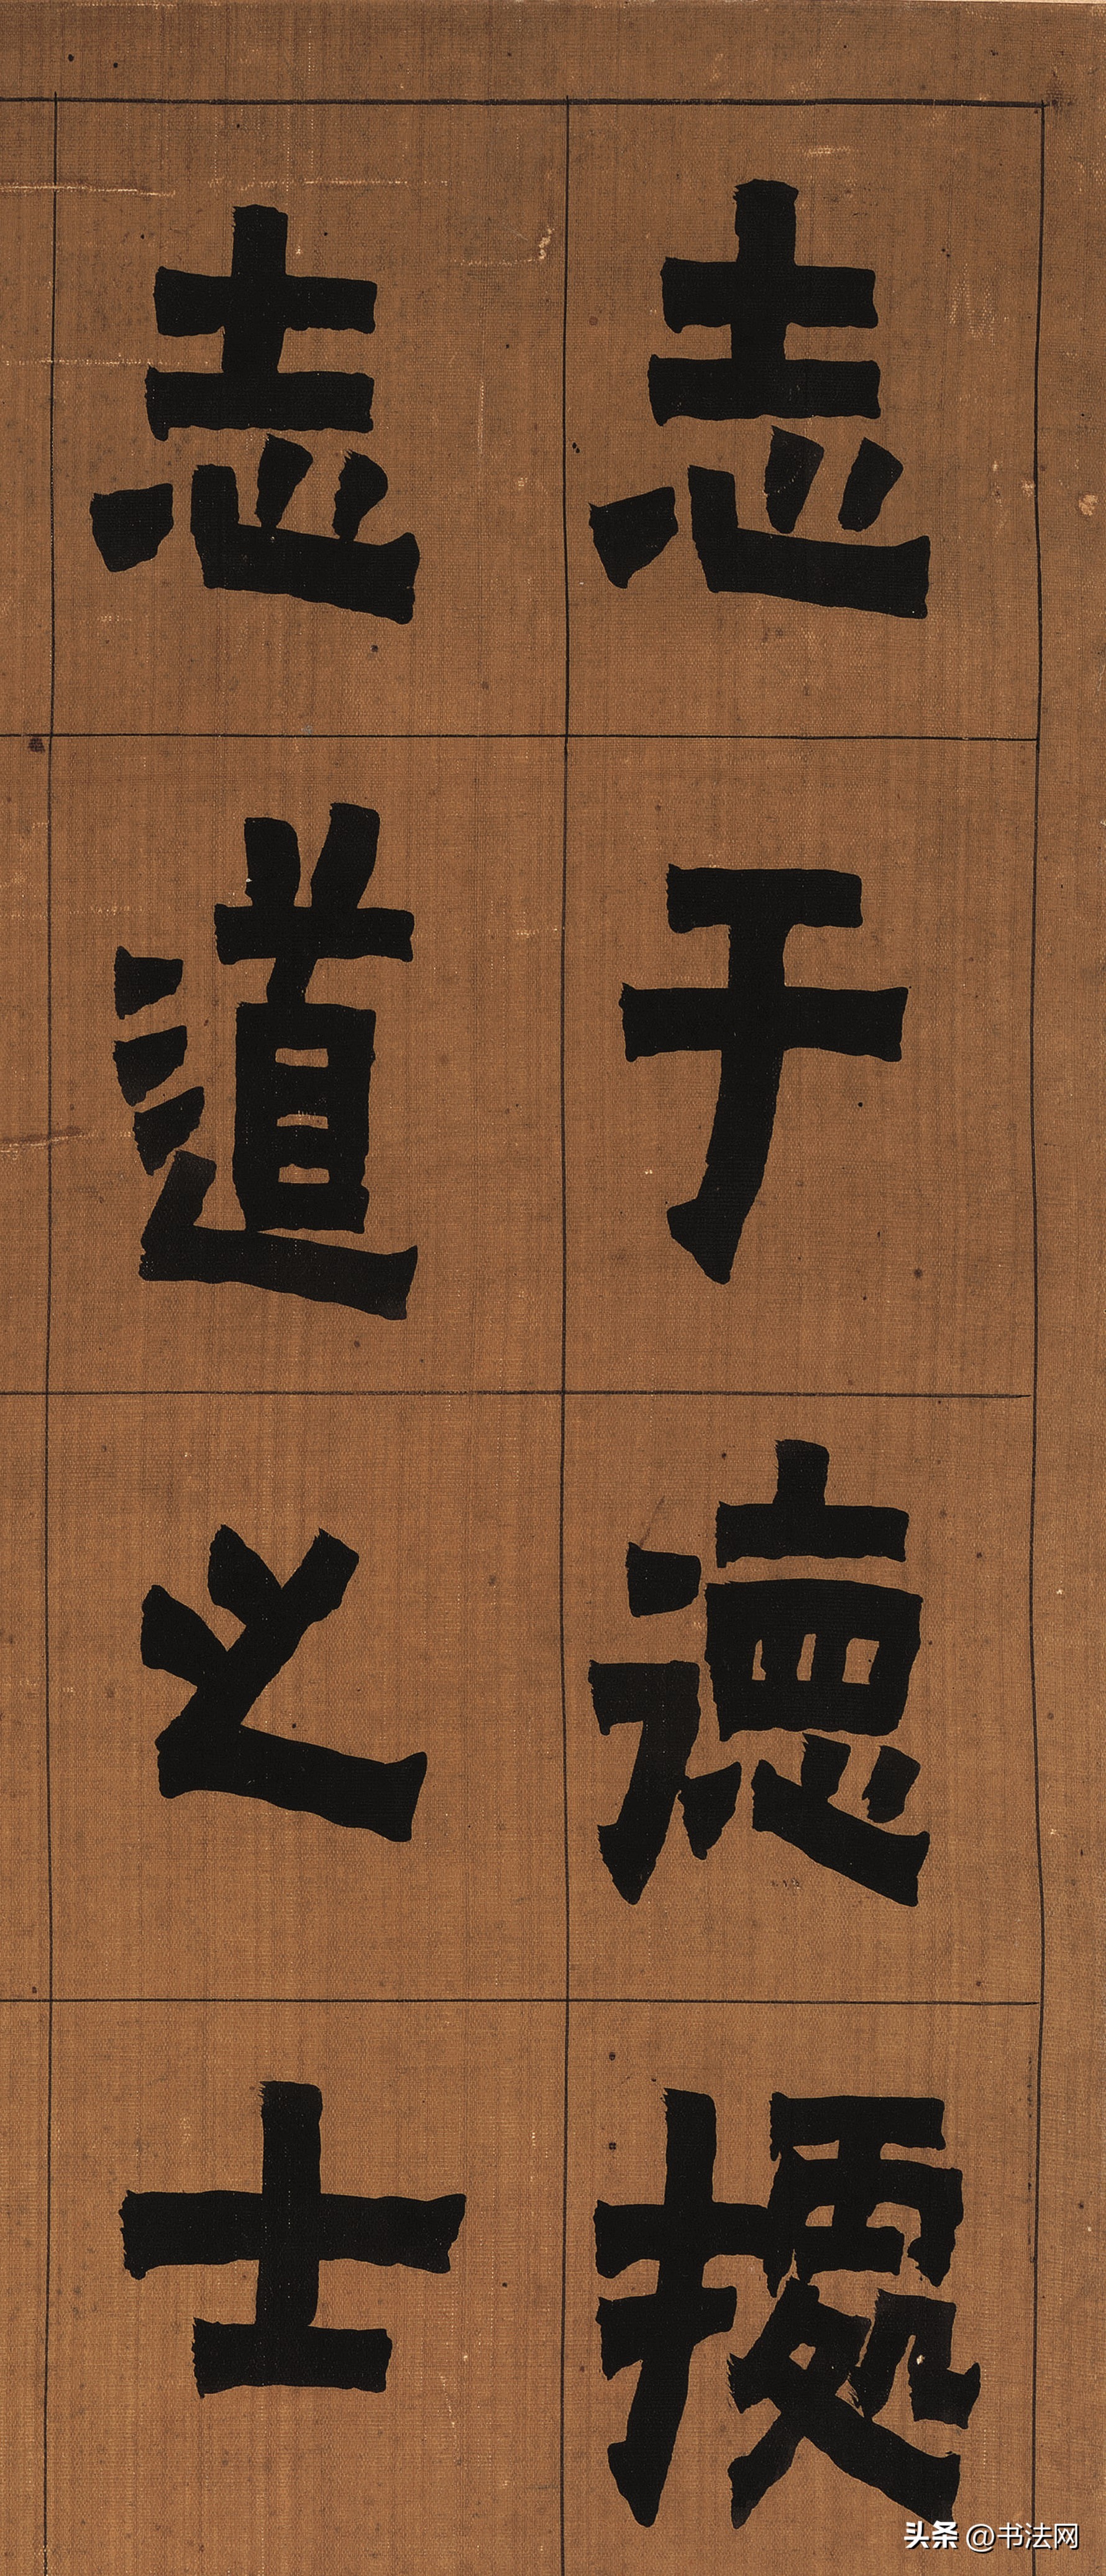 志于德㨿
志道之士
头条 @书法网